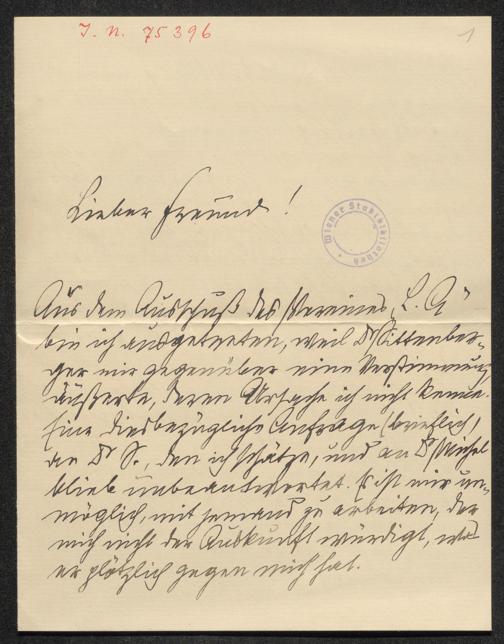 J. N. 75396
1
Lieber Freund!
Wiener Stadtbibliothek
Aus dem Ausschuß des Vereines „L. G"
bin ich ausgetreten, weil Dr Sittenber-
ger mir gegenüber eine Verstimmung
äußerte, deren Ursache ich nicht kenne.
Eine diesbezügliche Anfrage (brieflich,
an Dr S., den ich schätze, und an Dr Michel
blieb unbeantwortet. Es ist mir un-
möglich, mit jemand zu arbeiten, der
mich nicht der Auskunft würdigt, was
er plötzlich gegen mich hat.